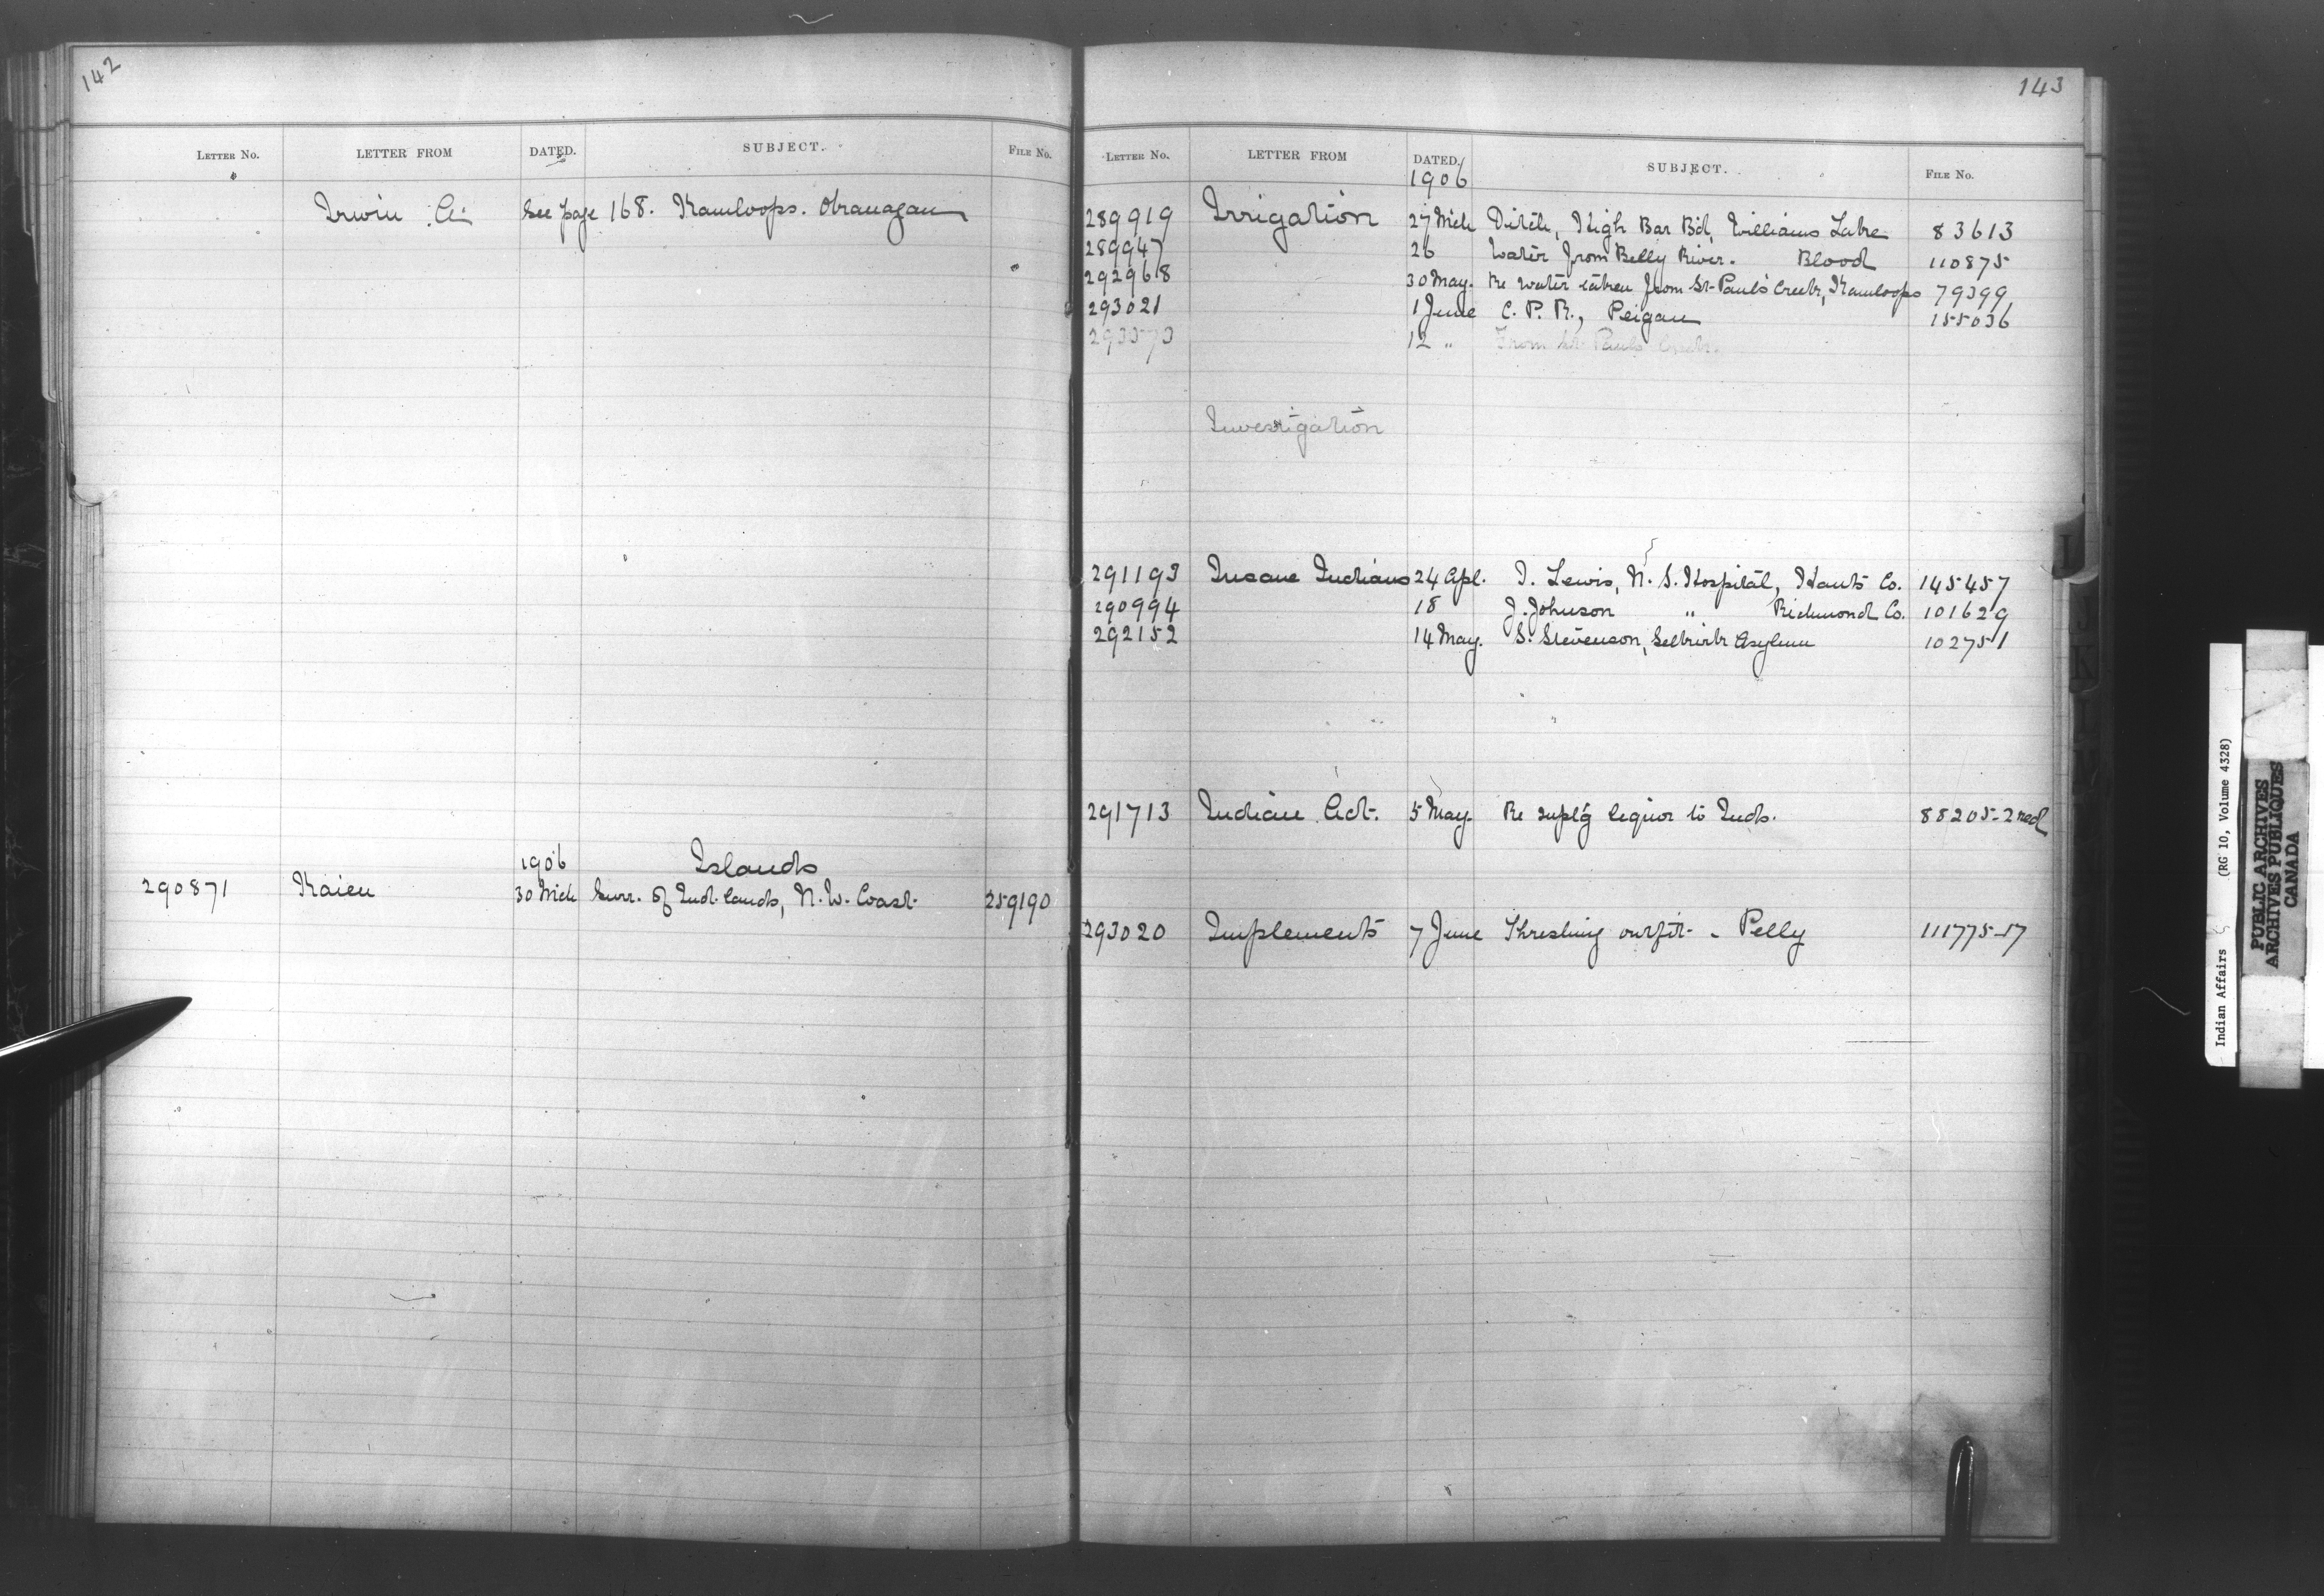 142
LETTER NO. LETTER FROM DATED. SUBJECT. FILE NO.
Irwin A. See page 168. Kamloops. Okanagan
1906 Islands
290871 Kaien 30 Mch Surr. of Ind. lands, N.W. Coast. 259190
143
LETTER NO. LETTER FROM DATED. SUBJECT. FILE NO.
1906
289919 Irrigation 27 Mch Ditch, High Bar Bd, Williams Lake 83613
289947 26 Water from Belly River. Blood 110875
292968 30 May. Re water taken from St. Paul's Creek, Kamloops 79399
293021 1 June C. P. R., Peigan 155036
293373 12 " From St. Pauls Creek.
Investigation
291193 Insane Indians 24 Apl. I. Lewis, N. S. Hospital, Hants Co. 145457
290994 18 J. Johnson " Richmond Co. 101629
292152 14 May. S. Stevenson, Selkirk Asylum 102751
291713 Indian Act. 5 May. Re supl'g liquor to Inds. 88205-2 red
293020 Implements 7 June Threshing outfit - Pelly 111775-17
I
J
K
Indian Affairs (RG 10, Volume 4328)
PUBLIC ARCHIVES
ARCHIVES PUBLIQUES
CANADA